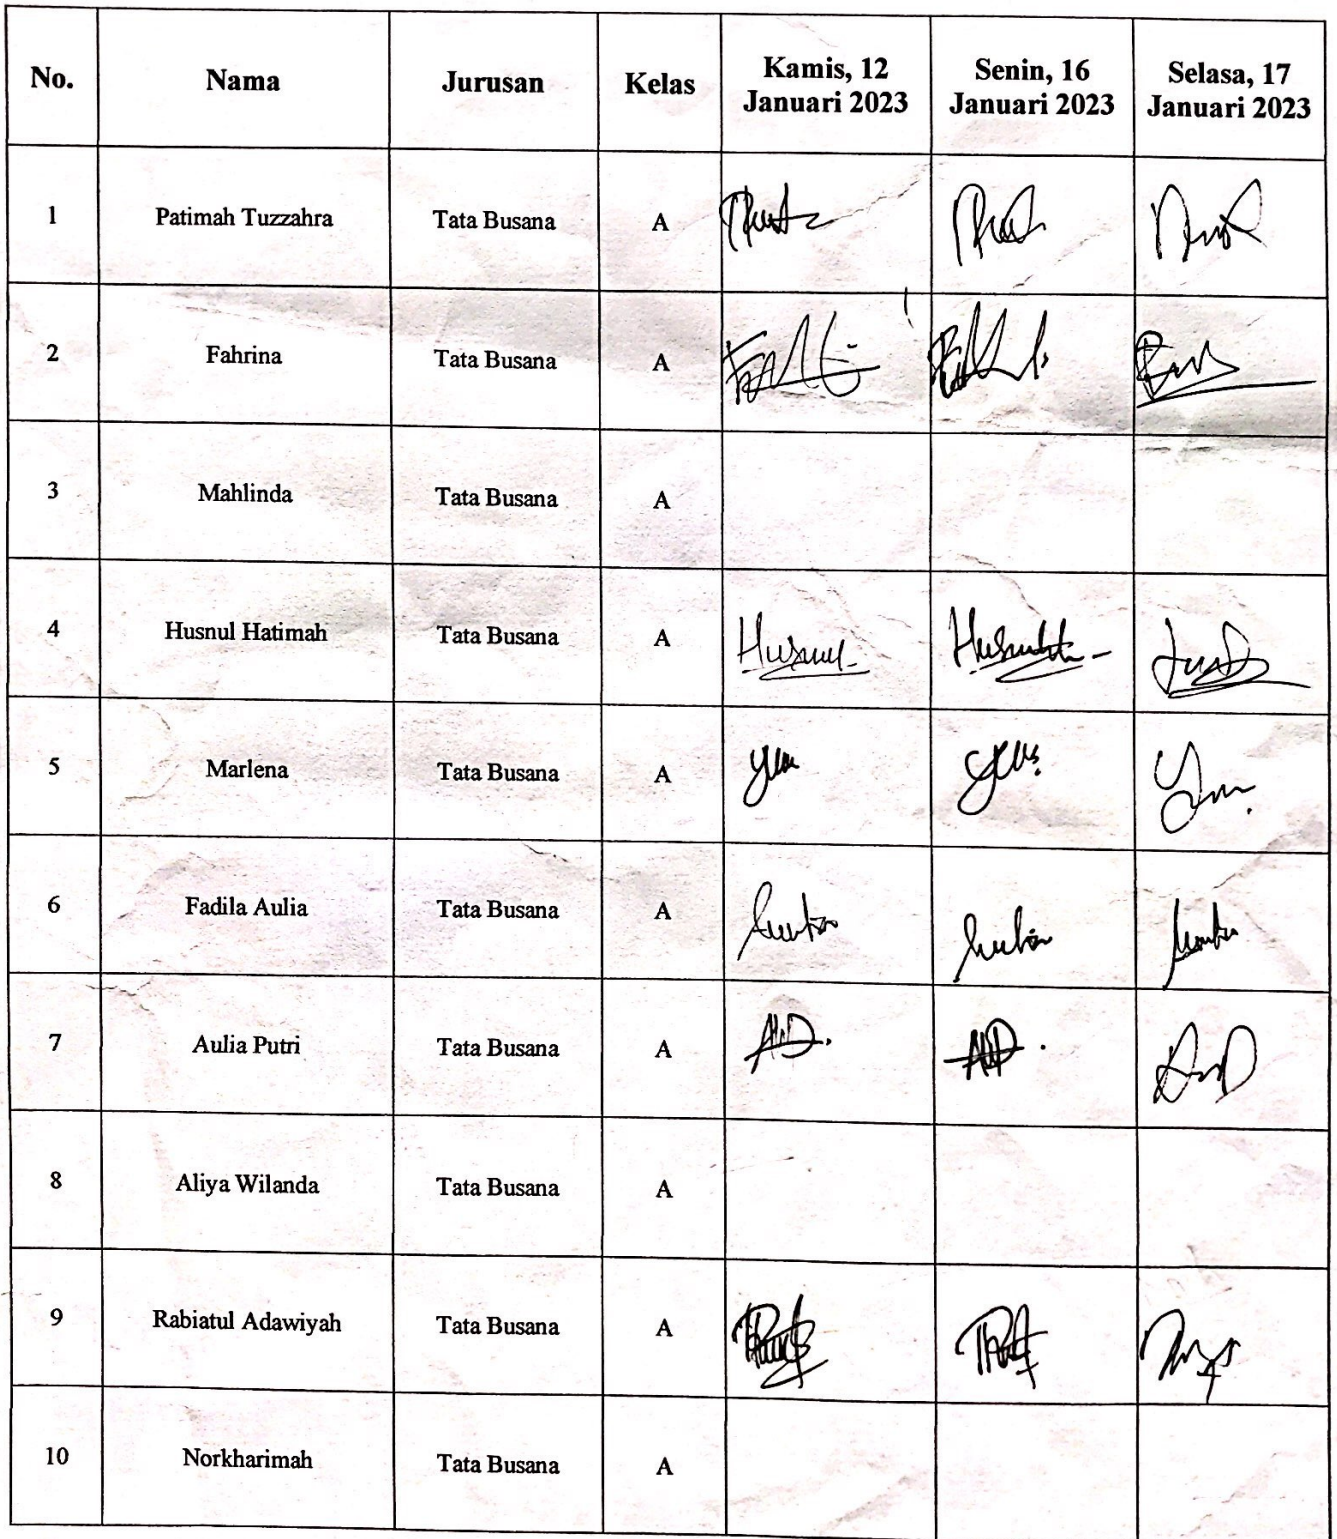 No. Nama Jurusan Kelas Kamis, 12 Januari 2023 Senin, 16 Januari 2023 Selasa, 17 Januari 2023
1 Patimah Tuzzahra Tata Busana A
2 Fahrina Tata Busana A
3 Mahlinda Tata Busana A
4 Husnul Hatimah Tata Busana A
5 Marlena Tata Busana A
6 Fadila Aulia Tata Busana A
7 Aulia Putri Tata Busana A
8 Aliya Wilanda Tata Busana A
9 Rabiatul Adawiyah Tata Busana A
10 Norkharimah Tata Busana A